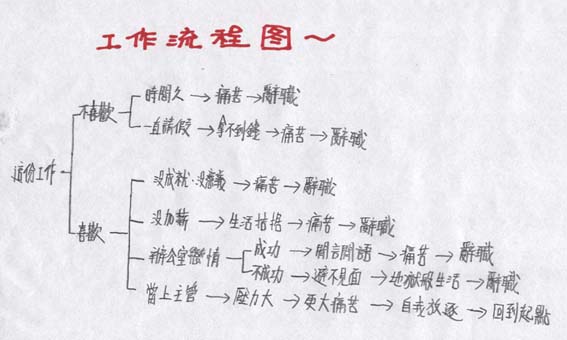 工作流程图～
不喜歡 時間久→痛苦→辭職
一直請假→拿不到錢→痛苦→辭職
這份工作
沒成就·沒意義→痛苦→辭職
沒加薪→生活拮据→痛苦→辭職
喜歡 辦公室戀情 成功→閒言閒語→痛苦→辭職
不成功→避不見面→地獄般生活→辭職
當上主管→壓力大→更大痛苦→自我放逐→回到起點